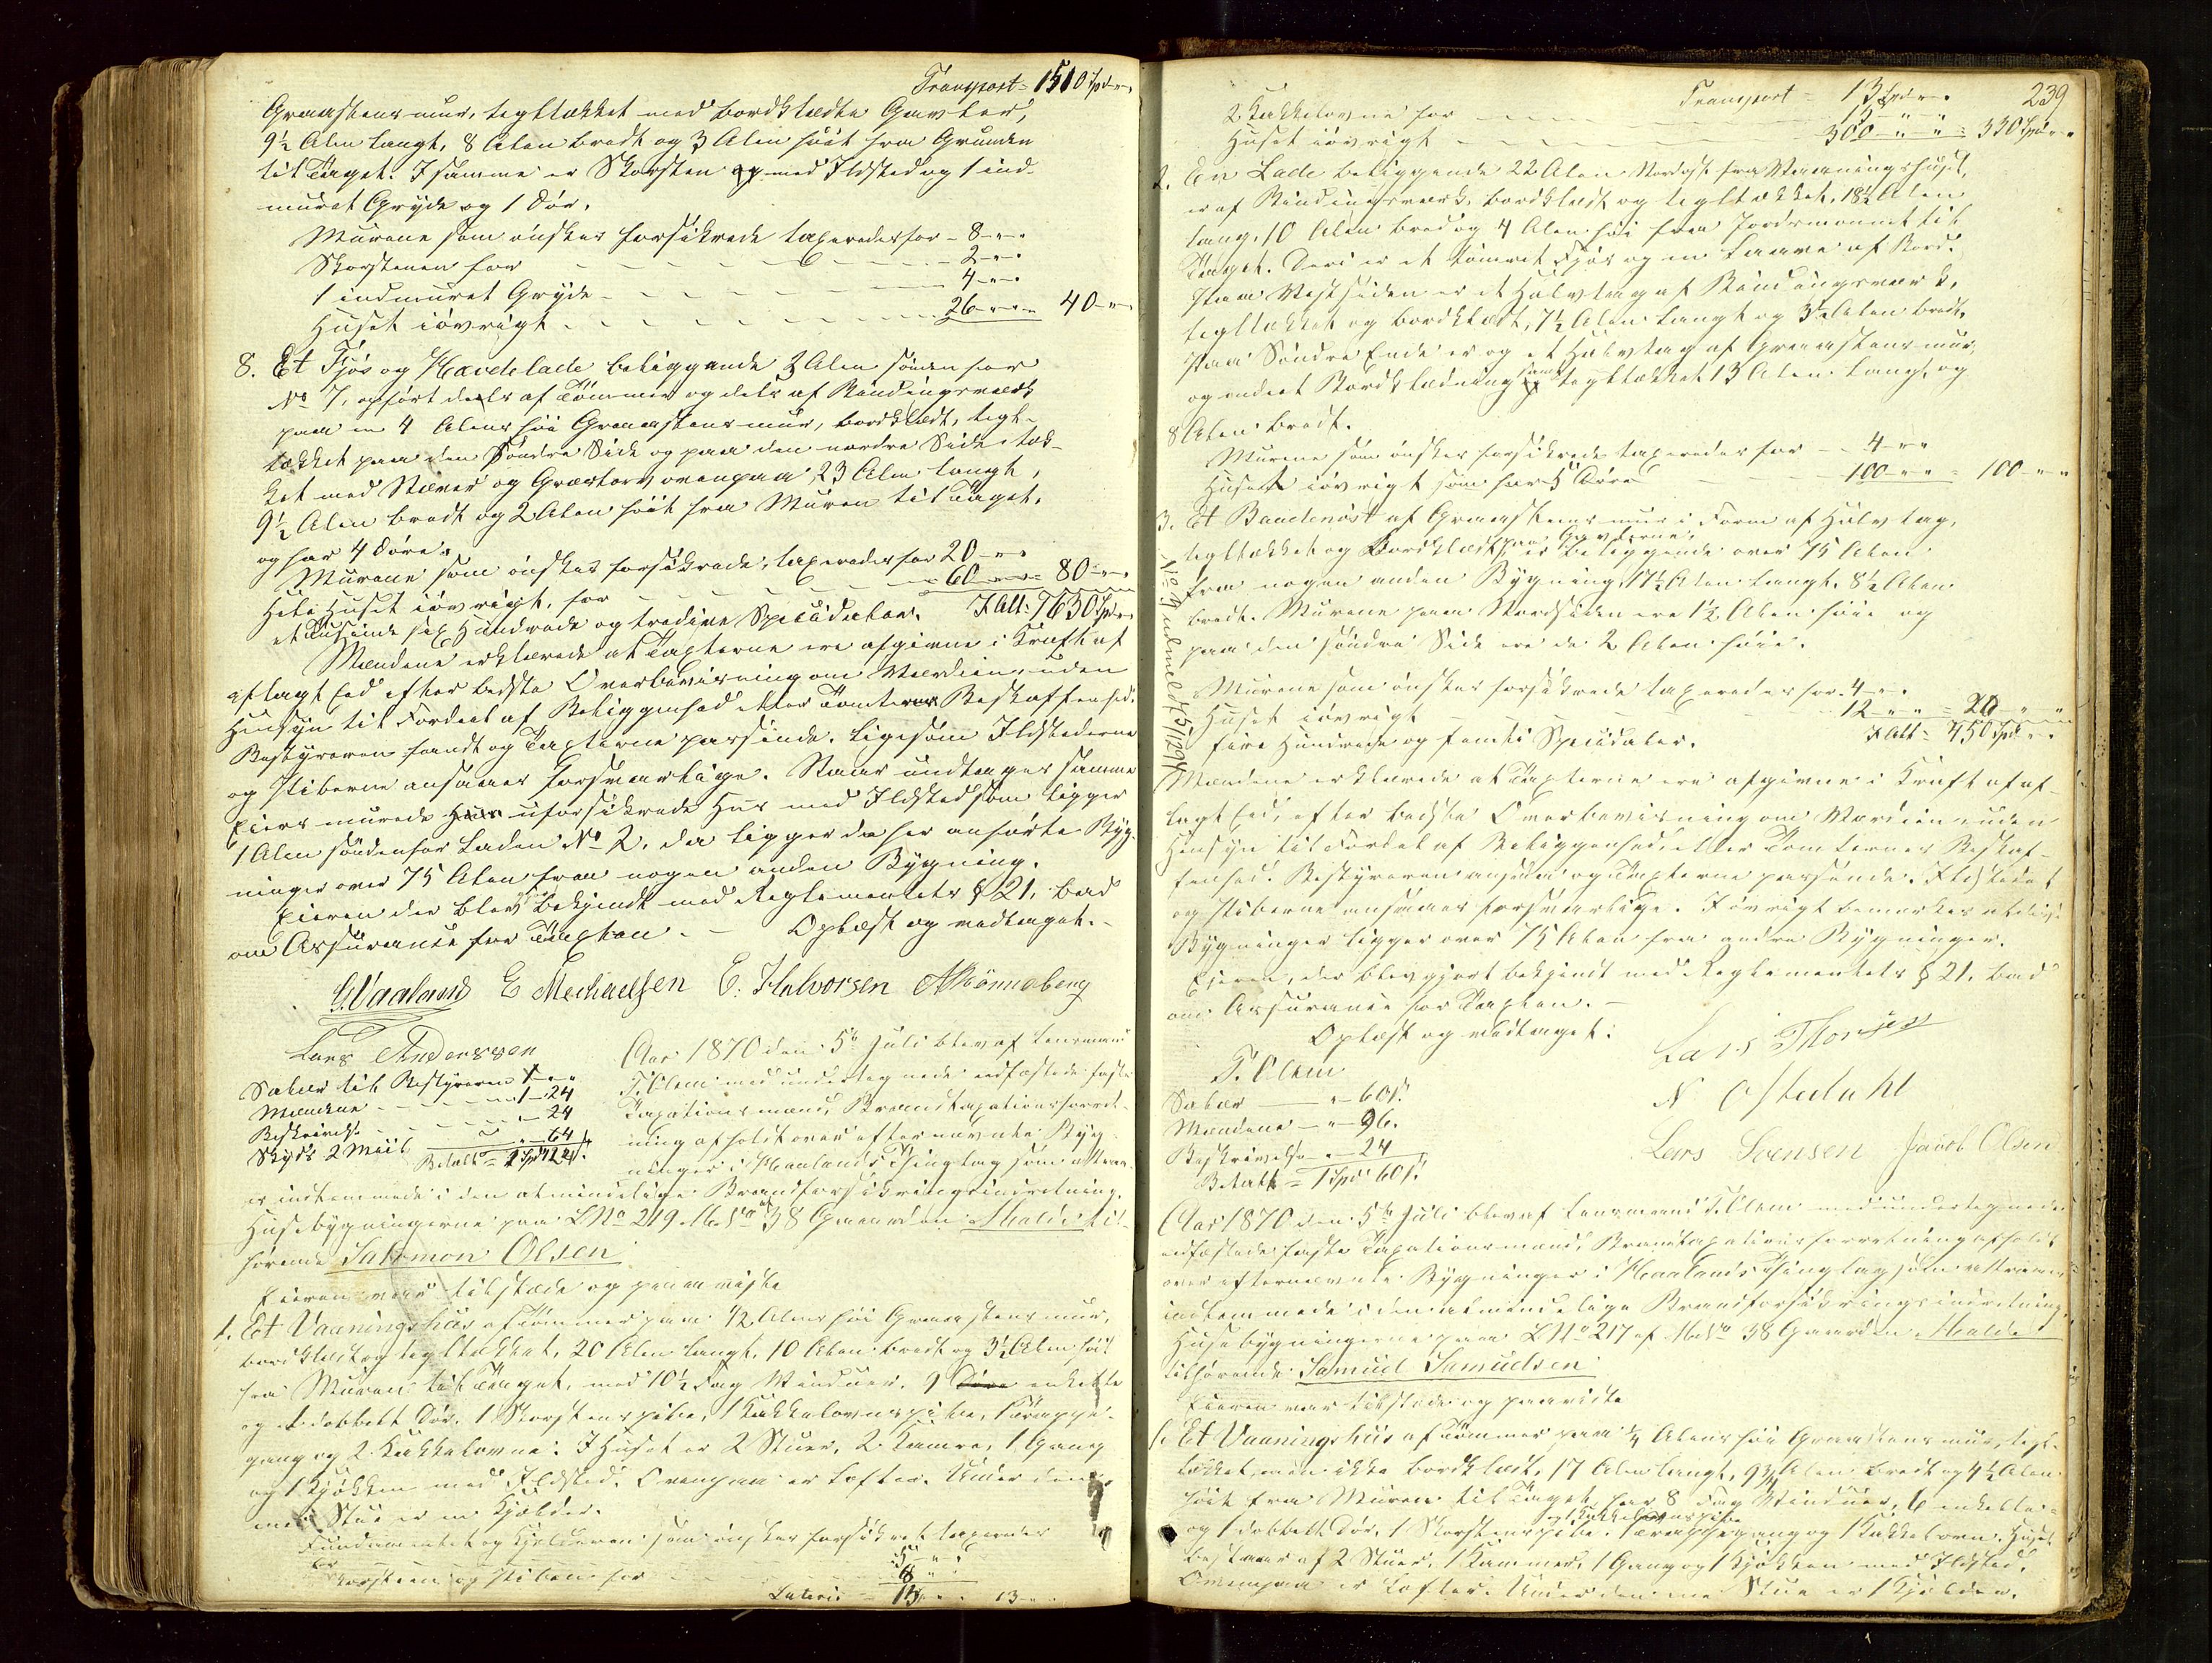 Transport = 1510 Spd " "
Graastensmur, tegltækket med bordklædte Gavler,
9½ Alen langt, 8 Alen bredt og 3 Alen höit fra Grunden
til Taget. I samme er Skorsten med Ildsted og 1 ind-
muret Gryde og 1 Dör.
Murene som önskes forsikrede taxeredes for - 8 " "
Skorstenen for - 2 " "
1 indmuret Gryde - 4 " "
Huset iövrigt - 26 " " = 40 " "
8. Et Fjös og Havelade beliggende 3 Alen sönden for
No 7, opfört deels af Tömmer og dels af Bindingsværk
paa en 4 Alens höi Graastensmur, bordklædt, tegl-
tækket paa den Söndre Side og paa den nordre Side tæk-
ket med Næver og Græstorv ovenpaa, 23 Alen langt,
9½ Alen bredt og 2 Alen höit fra Muren til Taget,
og har 4 Döre.
Murene som önskes forsikrede, taxeredes for 20 " "
Hele Huset iövrigt, for - 60 " " = 80 " "
et Tusinde sex Hundrede og tredive Speciedaler. I Alt = 1630 Spd "
Mændene erklærede at Taxterne ere afgivne i Kraft af
aflagt Eed efter bedste Overbeviisning om Værdien, uden
Hensyn til Fordeel af Beliggenhed eller Tomternes Beskaffenhed.
Bestyreren fandt og Taxterne passende, ligesom Ildstederne
og Piberne ansaaes forsvarlige. Naar undtages samme
Eiers murede uforsikrede Hus med Ildsted som ligger
1 Alen söndenfor Laden No 2, da ligger de her anförte Byg-
ninger over 75 Alen fra nogen anden Bygning.
Eieren der blev bekjendt med Reglementets § 21, bad
om Assurance for Taxten. - Oplæst og vedtaget. -
G. Vaaland E Mechaelsen E. Halvorsen A Rönneberg
Lars Anderssen
Salær til Bestyreren 1 " "
Mændene - 1 - 24
Beskrivelse - " - 24
Skyds 2 Miil - " - 64
Betalt =
Aar 1870 den 5te Juli blev af Lensmand
T. Olem med undertegnede edfæstede faste
Taxationsmænd, Brandtaxationsforret-
ning afholdt over efternævnte Byg-
ninger i Haalands Thinglag som attraaes
indlemmede i den almindelige Brandforsikringsindretning.
Husebygningerne paa LNo 219 af M.No 38 Gaarden Malde til-
hörende Salomon Olsen
Eieren var tilstæde og paaviste
1. Et Vaaningshus af Tömmer paa ½ Alens höi Graastensmur,
bordklædt og tegltækket, 20 Alen langt, 10 Alen bredt og 3½ Alen höit
fra Muren til Taget, med 10½ Fag Vinduer, 9 enkelte
og 1 dobbelt Dör, 1 Skorstenspibe, 1 Kakkelovnspibe, Trappe-
gang og 2 Kakkelovne. I Huset er 2 Stuer, 2 Kamre, 1 Gang
og 1 Kjökken med Ildsted. Ovenpaa er Lofter. Under den
ene Stue er en Kjelder.
Fundamentet og Kjelderen som önskes forsikret taxeredes
for 5 " "
Skorsten og Piben for 8 " "
Lateris = 13 " " 13 "
239
Transport = 13 Spd " "
2 Kakkelovne for
Huset iövrigt 300 " " = 330 Spd " "
2. En Lade beliggende 22 Alen Nordost fra Vaaningshuset,
er af Bindingsværk, bordklædt og tegltækket, 18½ Alen
lang, 10 Alen bred og 4 Alen höi fra Jordsmonnet til
Taget. Deri er et tömret Fjös og en Laave af Bord.
Paa Vestsiden er et Halvtag af Bindingsværk,
tegltækket og bordklædt, 7½ Alen langt og 3½ Alen bredt.
Paa Söndre Ende er og et Halvtag af Graastensmur
og endeel Bordklædning samt tegltækket 13 Alen langt og
8 Alen bredt.
Murene som önskes forsikrede taxeredes for - 4 " "
Huset iövrigt som har 5 Döre 100 " " = 100 " "
3. Et Baadenöst af Graastensmur i Form af Halvtag,
tegltækket og Bordklædt paa Gavlerne, er beliggende over 75 Alen
fra nogen anden Bygning, 17½ Alen langt, 8½ Alen
bredt. Murene paa Nordsiden ere 1½ Alen höie og
paa den söndre Side ere de 2 Alen höie.
Murene som önskes forsikrede taxeredes for - 4 " "
Huset iövrigt 12 " " = 20 " "
fire Hundrede og femti Speciedaler. I Alt = 450 Spd " "
Mændene erklærede at Taxterne ere afgivne i Kraft af af-
lagt Eed, efter bedste Overbevisning om Værdien, uden
Hensyn til Fordel af Beliggenhed eller Tomternes Beskaf-
fenhed. Bestyreren ansaa og Taxterne passende. Ildstedet
og Piberne ansaaes forsvarlige. Iövrigt bemærkes at disse
Bygninger ligger over 75 Alen fra andre Bygninger.
Eieren, der blev gjort bekjendt med Reglementets § 21, bad
om Assurance for Taxten. -
Oplæst og vedtaget:
T. Olem
Lars Thorsen
N. Ostedahl
Lars Svensen Jacob Olsen
Salær - " - 60 s.
Mændene - " - 96.
Beskrivelse " - 24
Betalt = 1 Spd 60 s.
Aar 1870 den 5te Juli blev af Lensmand T. Olem med undertegnede
edfæstede faste Taxationsmænd, Brandtaxationsforretning afholdt
over efternævnte Bygninger i Haalands Thinglag som attraaes
indlemmede i den almindelige Brandforsikringsindretning.
Husebygningerne paa LNo 217 af M.No 38 Gaarden Malde
tilhörende Samuel Samuelsen
Eieren var tilstede og paaviste
1. Et Vaaningshus af Tömmer paa ¼ Alens höi Graastensmur, tegl-
tækket, men ikke bordklædt, 17 Alen langt, 9¾ Alen bredt og 4½ Alen
höit fra Muren til Taget, har 8 Fag Vinduer, 6 enkelte
og 1 dobbelt Dör, 1 Skorstenspibe, 1 Kakkelovnspibe, Trappegang og 1 Kakkelovn. Huset
bestaar af 2 Stuer, 1 Kammer, 1 Gang og 1 Kjökken med Ildsted.
Ovenpaa er Lofter. Under den ene Stue er 1 Kjelder.